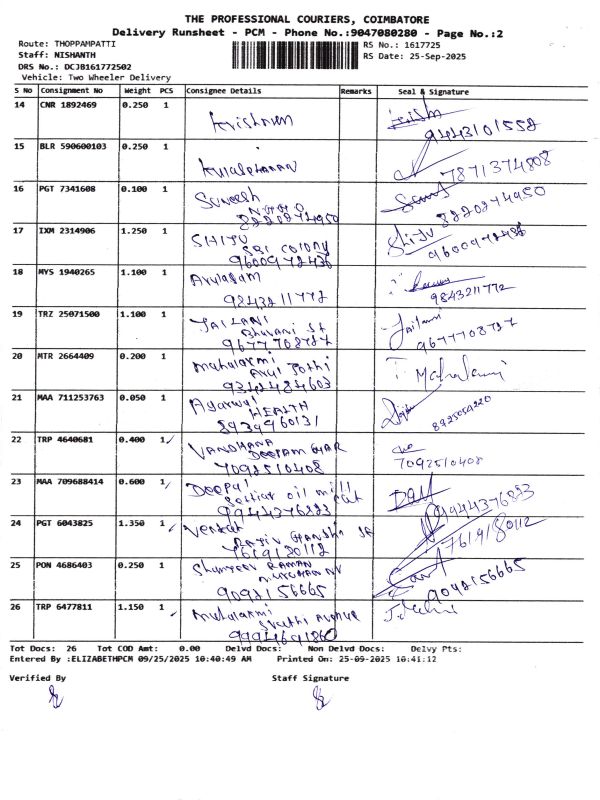 THE PROFESSIONAL COURIERS, COIMBATORE
Delivery Runsheet - PCM - Phone No.:9047080280 - Page No.:2
Route: THOPPAMPATTI
RS No.: 1617725
Staff: NISHANTH
RS Date: 25-Sep-2025
DRS No.: DCJB161772502
Vehicle: Two Wheeler Delivery
S No Consignment No Weight PCS Consignee Details Remarks Seal & Signature
14 CNR 1892469 0.250 1
Krishnan
9443101558
15 BLR 590600103 0.250 1
7871374808
16 PGT 7341608 0.100 1
Suresh
8220874950
8220874950
17 IXM 2314906 1.250 1
SHIJU Shiju
SRI COLONY
9600972436
18 MYS 1940265 1.100 1
Arulagam
9843211772 9843211772
19 TRZ 25071500 1.100 1
JAILANI Jailani
Bhavani St
9677708727 9677708727
20 MTR 2664409 0.200 1
Mahalaxmi
Arul Jothi
9342484603
21 MAA 711253763 0.050 1
Agarwal
HEALTH
8939960131 8925054220
22 TRP 4640681 0.400 1
VANDHANA
DEEPAM GHAR
7092510408 7092510408
23 MAA 709688414 0.600 1
Deepa
oil mill
9944376883 9944376883
24 PGT 6043825 1.350 1
Venkat
7619180112 7619180112
25 PON 4686403 0.250 1
RAMAN
9092156665 9092156665
26 TRP 6477811 1.150 1
Mahalaxmi
9994691860
Tot Docs: 26 Tot COD Amt: 0.00 Delvd Docs: Non Delvd Docs: Delvy Pts:
Entered By :ELIZABETHPCM 09/25/2025 10:40:49 AM Printed On: 25-09-2025 10:41:12
Verified By Staff Signature